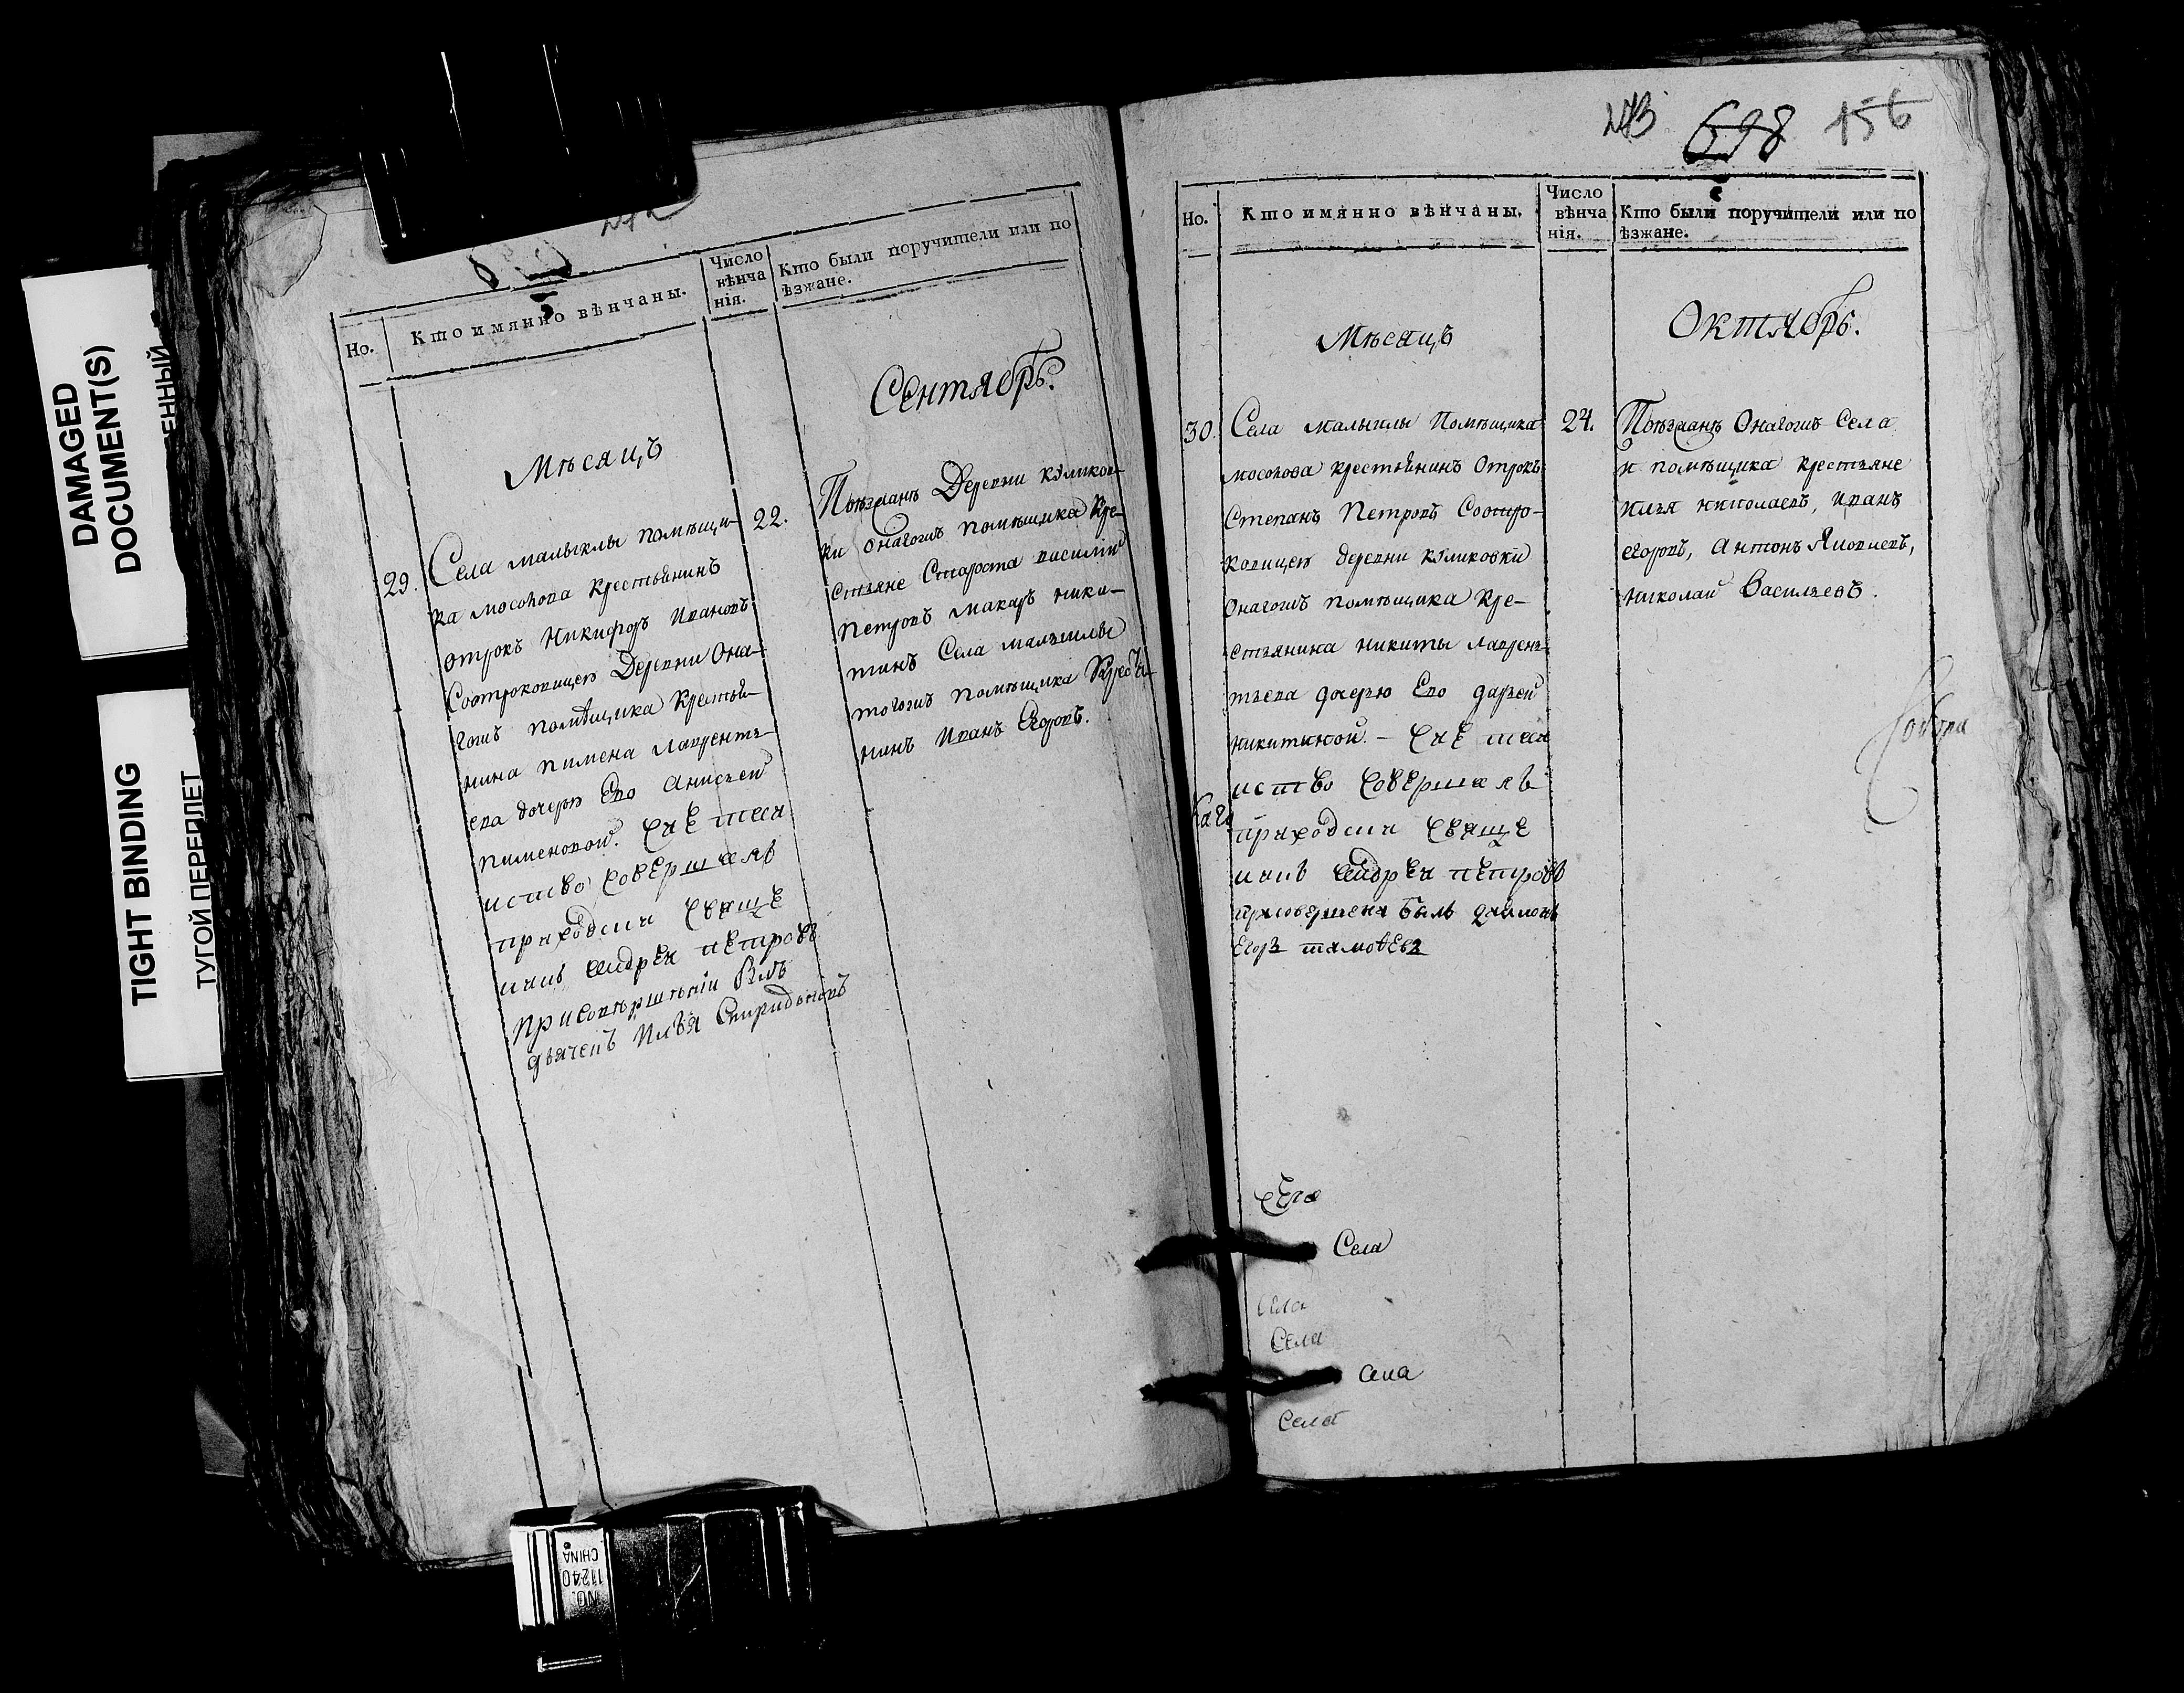 DAMAGED
DOCUMENT(S)
ЕННЫЙ
TIGHT BINDING
ТУГОЙ ПЕРЕПЛЕТ
Но.
Кто имянно вѣнчаны.
Число
вѣнча
нія.
Кто были поручители или по
ѣзжане.
Мѣсяцъ
Сентябрь.
29.
Села малыклы помѣщи-
ка мосолова крестьянинъ
отрокъ Никифоръ Ивановъ
Соотроковицею Деревни Она-
гожъ помѣщика крестья-
нина пимена лаврентье-
ева дочерю Ево анисьей
пименовой. сие таи
нство совершалъ
приходски свяще
никъ андреи петровъ
присовѣршѣніи былъ
дьячекъ Илья Спиридоновъ
22.
Поѣзжанѣ Деревни куликов-
ки онагожъ помѣщика кре-
стьяне Староста василий
Петровъ макаръ ники-
тинъ Села малыклы
тогожъ помѣщика крестья-
нинъ Иванъ Егоровъ.
698 156
Но.
Кто имянно вѣнчаны.
Число
вѣнча
нія.
Кто были поручители или по
ѣзжане.
Мѣсяцъ
Октябрь.
30.
Села малыклы Помѣщика
мосолова крестьянинъ Отрокъ
Степанъ Петровъ Соотро-
ковицею деревни куликовки
Онагожъ помѣщика кре-
стьянина никиты лаврень-
тьева дочерью Ево дарьей
никитиной. - сие таи
нство совершалъ
приходски свяще
никъ андреи петровъ
присовершени былъ дьячокъ
Егоръ
24.
Поѣзжанѣ Онагожъ Села
и помѣщика крестьяне
Илья николаевъ, иванъ
егоровъ, антонъ Яковлевъ,
николай Васильевъ.
собора
Его
Села
Села
Села
Села
Села
NO.
11240
CHINA